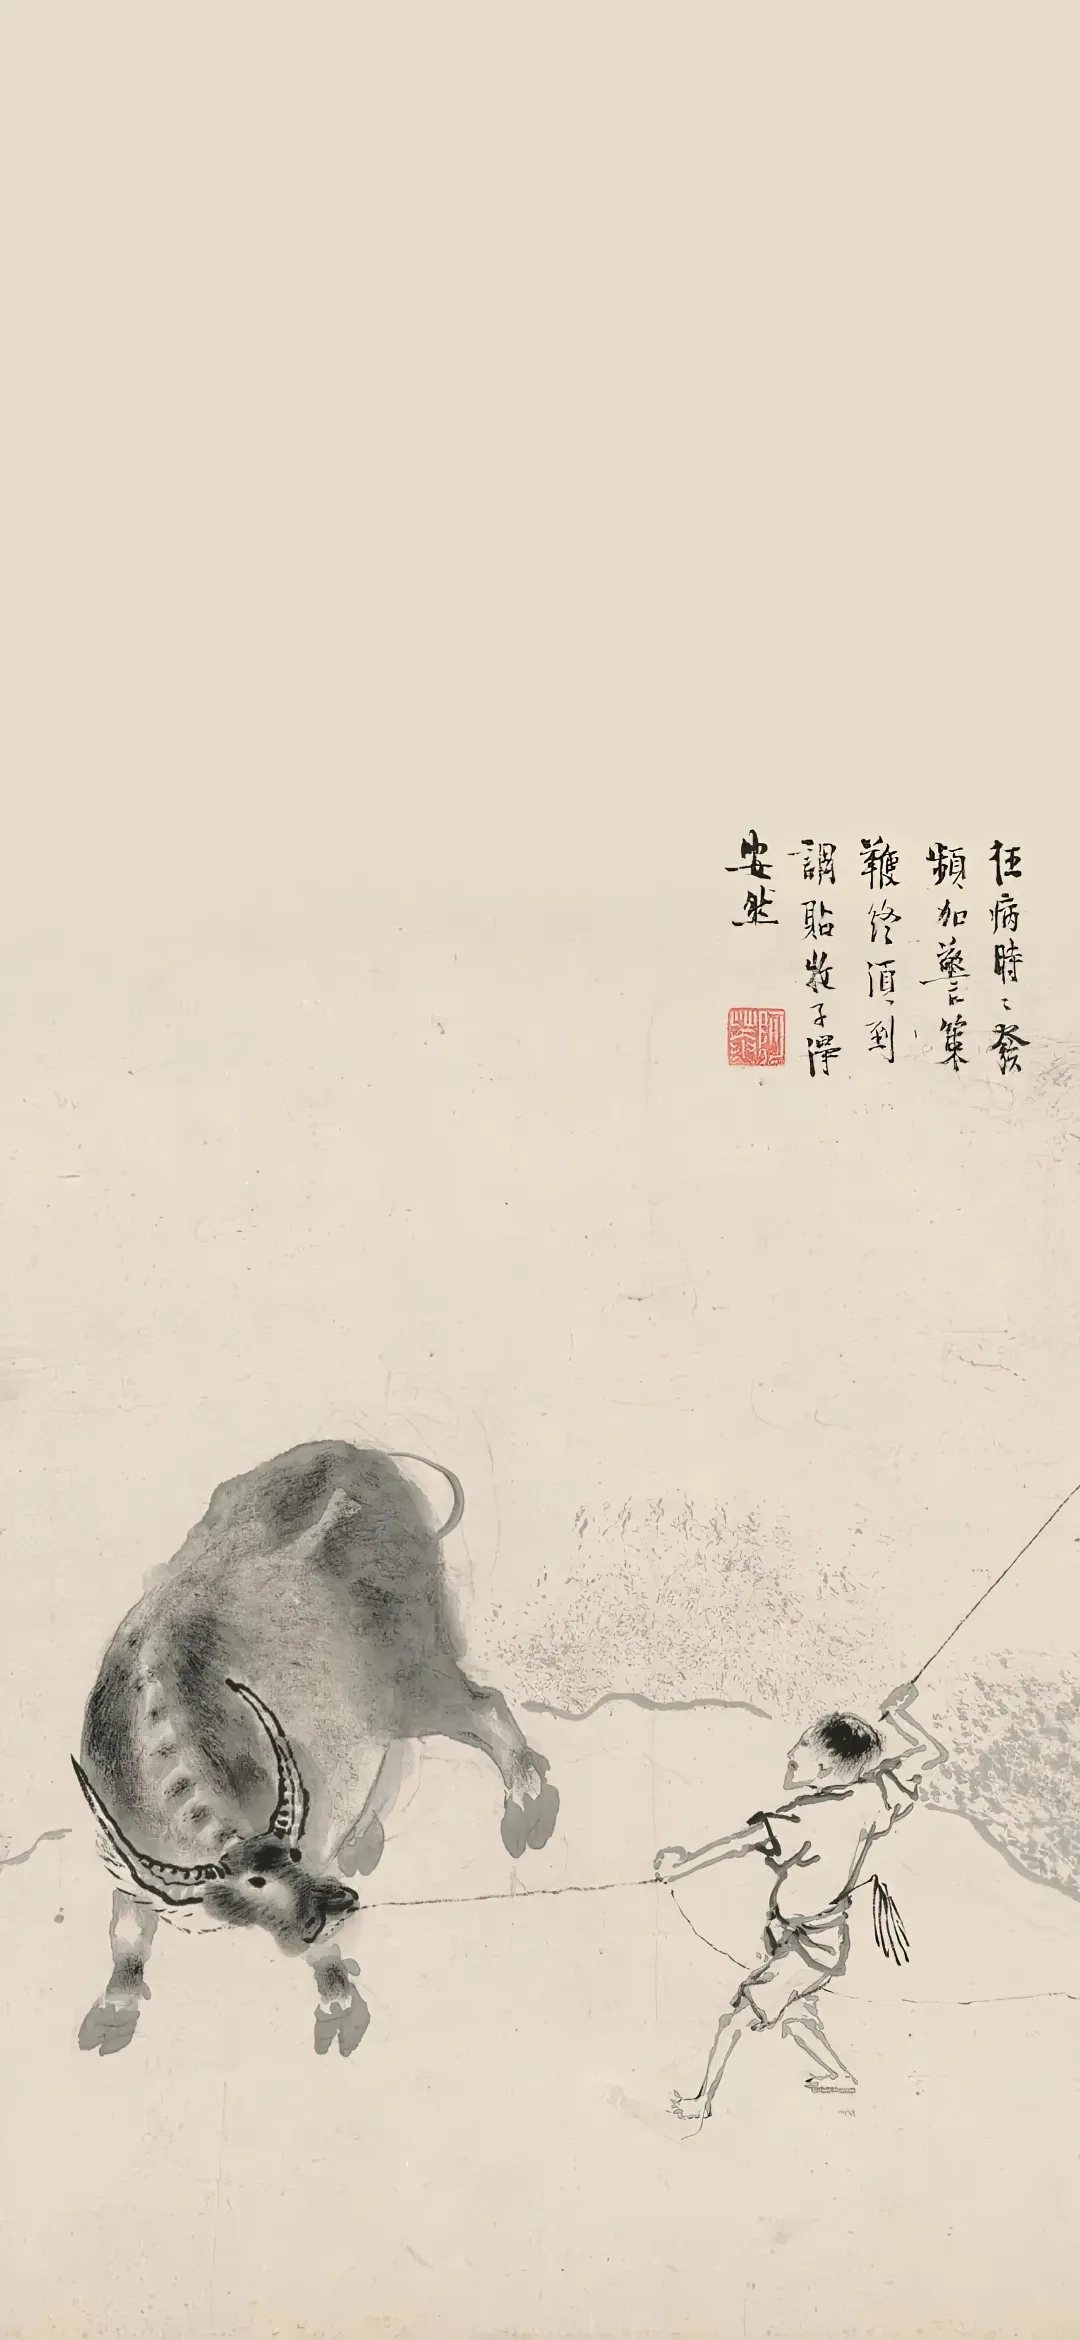 狂病時〻發
頻加警策
鞭終須到
調貼牧子得
安然